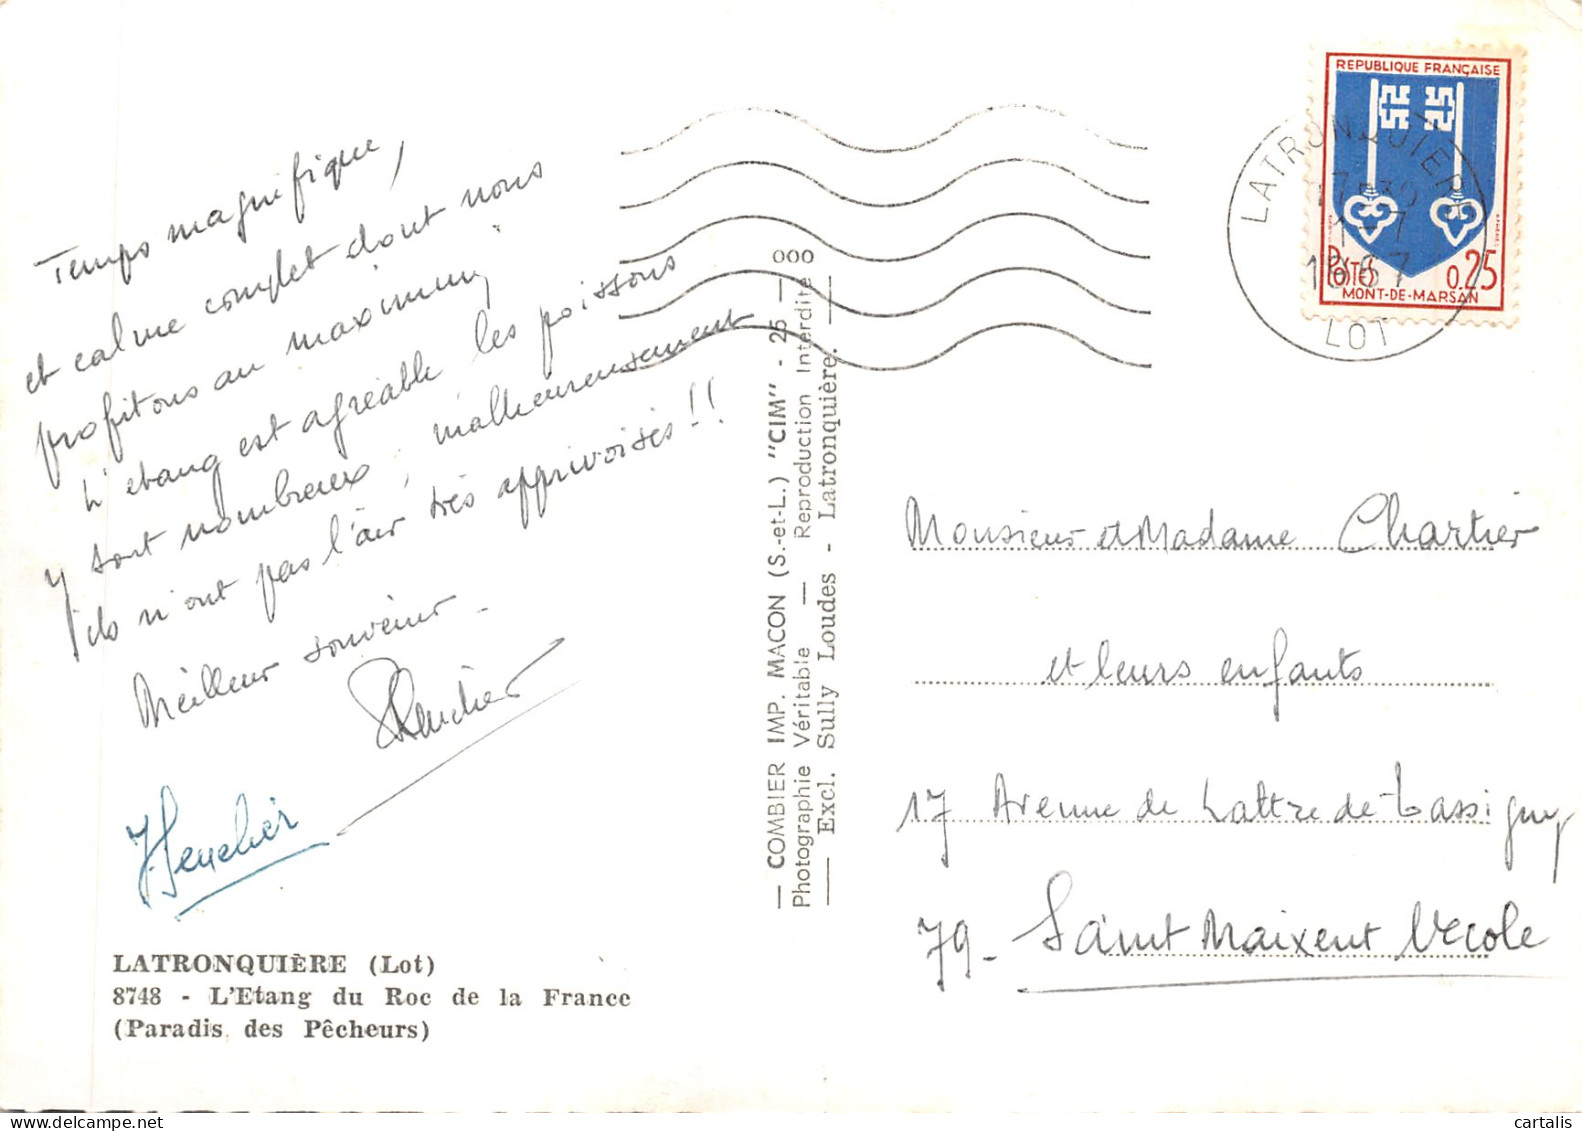 Temps magnifique,
et calme complet dont nous
profitons au maximum
L'étang est agréable les poissons
y sont nombreux, malheureusement
ils n'ont pas l'air très apprivoisés !!
Meilleur souvenir -
LATRONQUIÈRE (Lot)
8748 - L'Etang du Roc de la France
(Paradis des Pêcheurs)
— COMBIER IMP. MACON (S.-et-L.) "CIM" - 25 — 000
Photographie Véritable — Reproduction Interdite
— Excl. Sully Loudes - Latronquière. —
REPUBLIQUE FRANÇAISE
POSTES 0.25
MONT-DE-MARSAN
LATRONQUIERE
1-7
LOT
Monsieur et Madame Chartier
et leurs enfants
17 Avenue de Lattre de-Tassigny
79- Saint Maixent l'école
cartalis